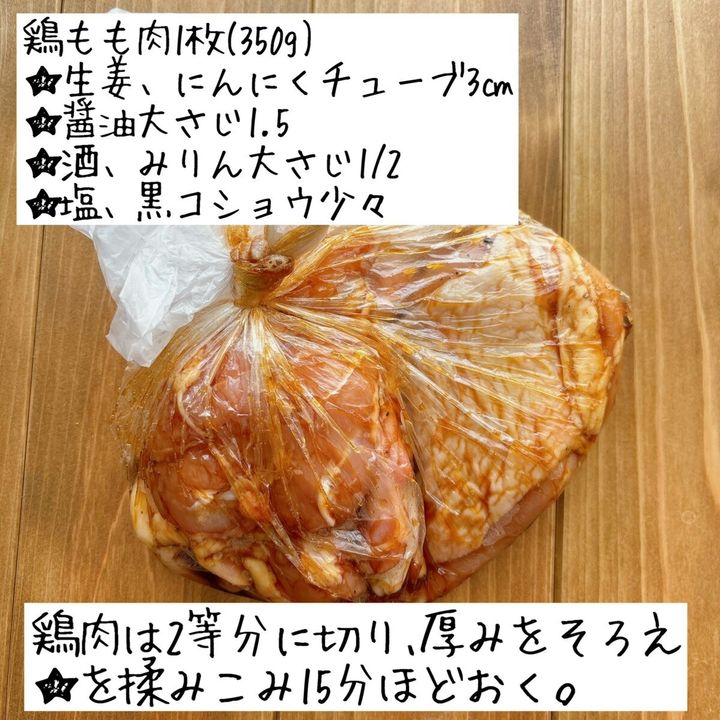 鶏もも肉1枚(350g)
★生姜、にんにくチューブ3cm
★醤油大さじ1.5
★酒、みりん大さじ1/2
★塩、黒コショウ少々
鶏肉は2等分に切り、厚みをそろえ
★を揉みこみ15分ほどおく。